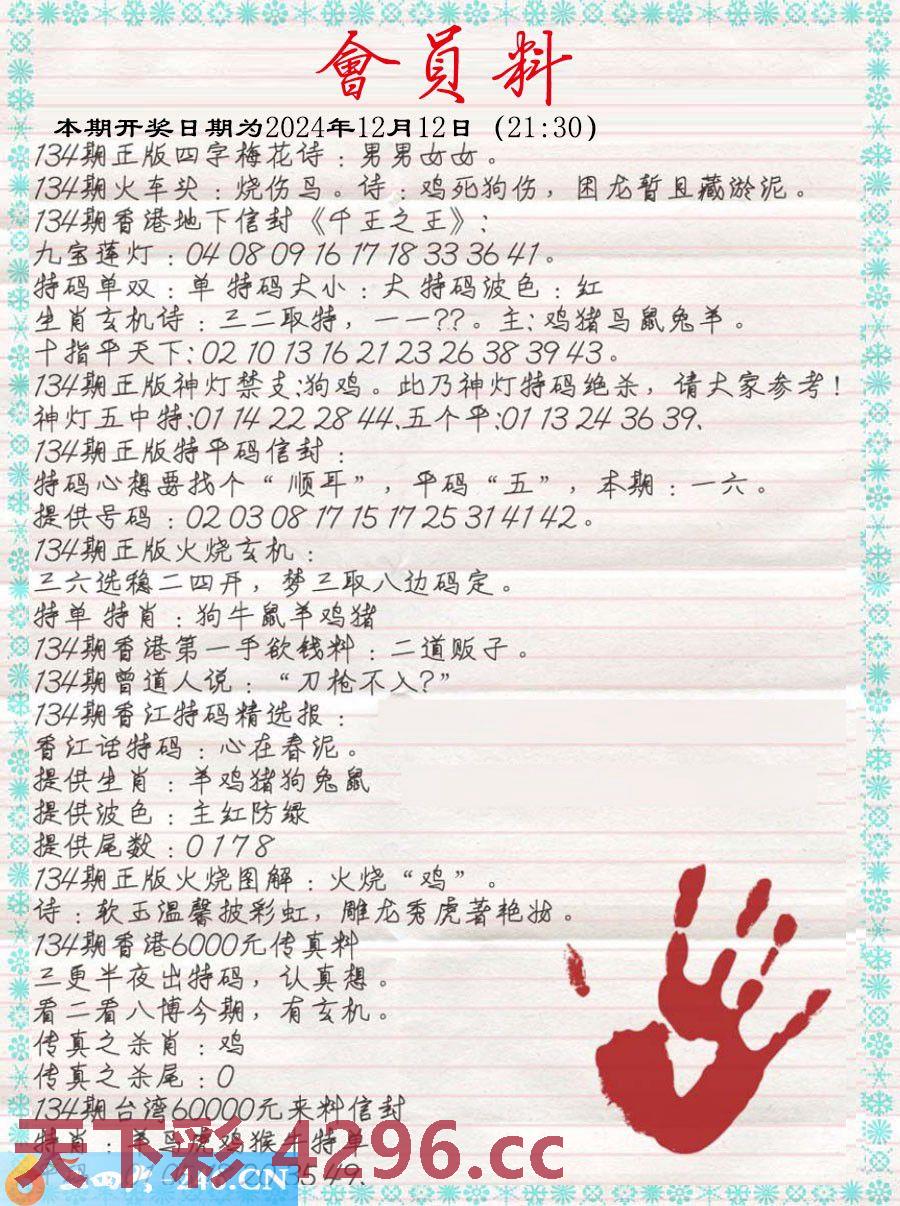 會員料
本期开奖日期为2024年12月12日（21:30）
134期正版四字梅花诗：男男女女。
134期火车头：烧伤鸟。诗：鸡死狗伤，困龙暂且藏淤泥。
134期香港地下信封《千王之王》：
九宝莲灯：04 08 09 16 17 18 33 36 41。
特码单双：单 特码大小：大 特码波色：红
生肖玄机诗：三二取特，一一??。主：鸡猪马鼠兔羊。
十指平天下：02 10 13 16 21 23 26 38 39 43。
134期正版神灯禁支:狗鸡。此乃神灯特码绝杀，请大家参考！
神灯五中特:01 14 22 28 44、五个平:01 13 24 36 39、
134期正版特平码信封：
特码心想要找个“顺耳”，平码“五”，本期：一六。
提供号码：02 03 08 17 15 17 25 31 41 42。
134期正版火烧玄机：
三六选稳二四开，梦三取八边码定。
特单 特肖：狗牛鼠羊鸡猪
134期香港第一手欲钱料：二道贩子。
134期曾道人说：“刀枪不入?”
134期香江特码精选报：
香江话特码：心在春泥。
提供生肖：羊鸡猪狗兔鼠
提供波色：主红防绿
提供尾数：0 1 7 8
134期正版火烧图解：火烧“鸡”。
诗：软玉温馨披彩虹，雕龙秀虎著艳妆。
134期香港6000元传真料
三更半夜出特码，认真想。
看二看八博今期，有玄机。
传真之杀肖：鸡
传真之杀尾：0
134期台湾60000元来料信封
特肖：羊马虎鸡猴牛特单
天下彩 4296.cc
246.CN
35 49、